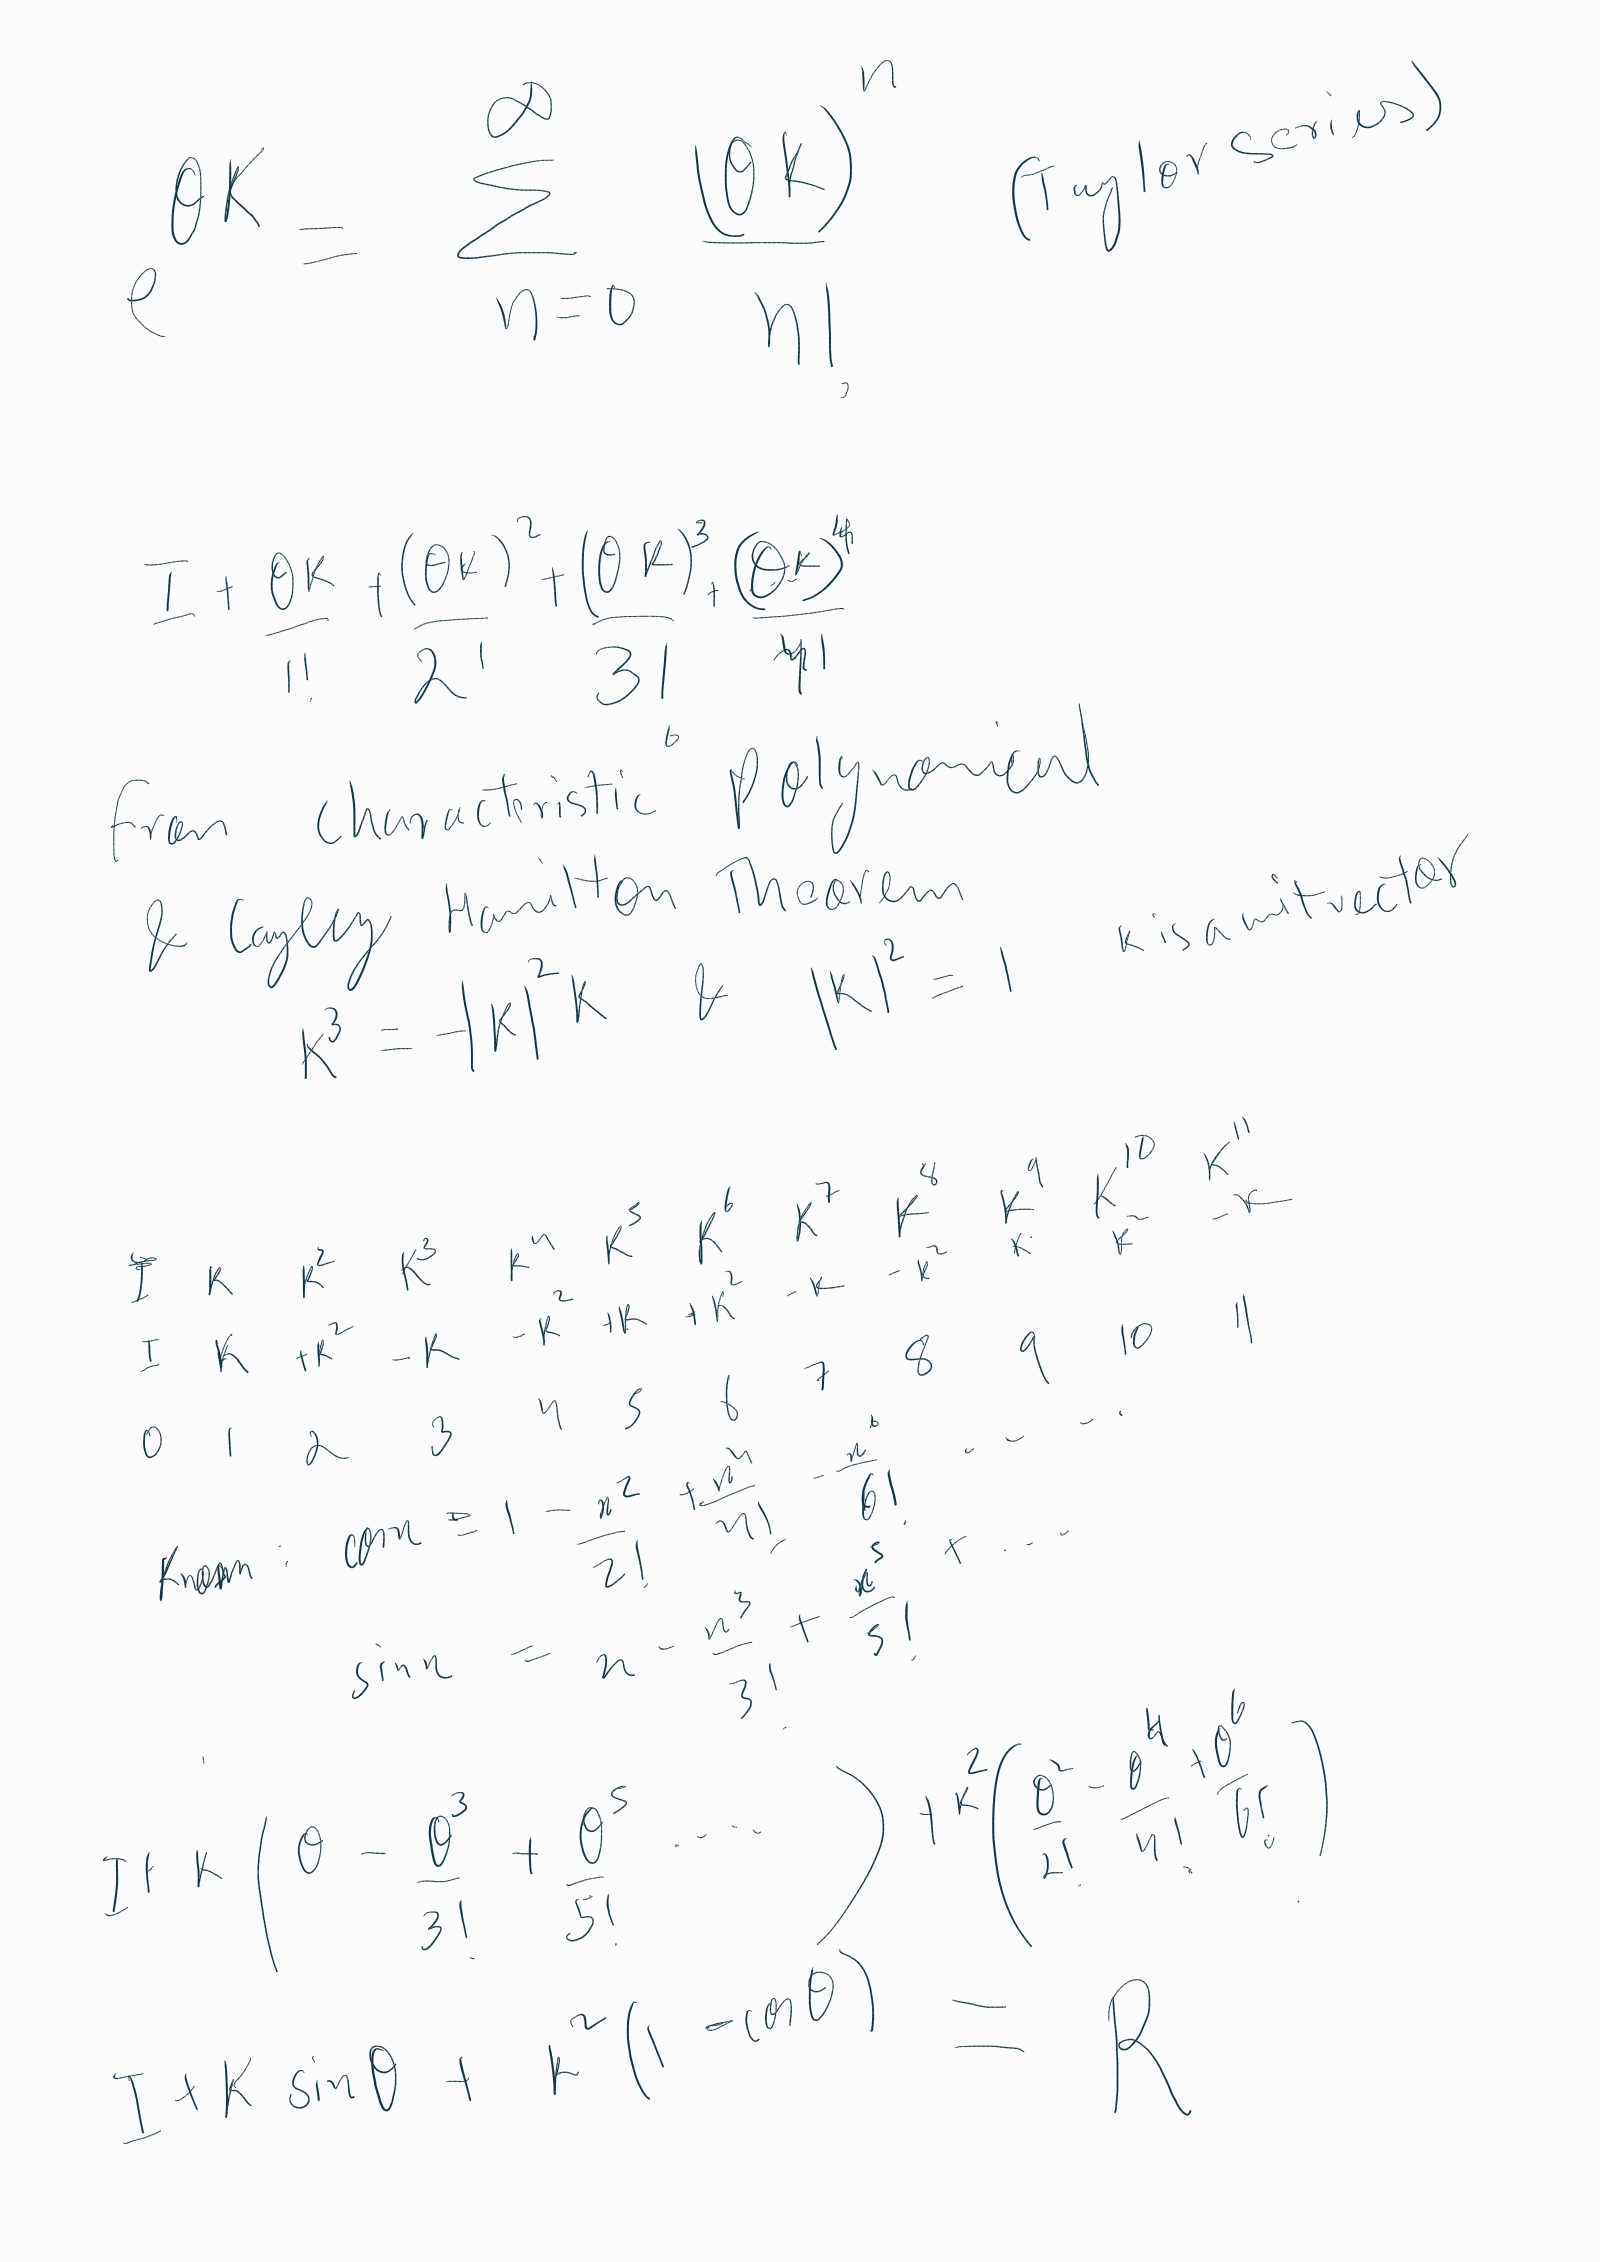 e^{θK} = ∑_{n=0}^{∞} (θK)^n / n! (Taylor series)
I + θK/1! + (θK)^2/2! + (θK)^3/3! + (θK)^4/4!
From characteristic polynomical
& Cayley Hamilton Theorem
K^3 = -|K|^2 K & |K|^2 = 1 K is a unit vector
I K K^2 K^3 K^4 K^5 K^6 K^7 K^8 K^9 K^10 K^11
I K +K^2 -K -K^2 +K +K^2 -K -K^2 K K^2 -K
0 1 2 3 4 5 6 7 8 9 10 11
Known: cos x = 1 - x^2/2! + x^4/4! - x^6/6! ....
sin x = x - x^3/3! + x^5/5! + ....
I + K(θ - θ^3/3! + θ^5/5! ....) + K^2(θ^2/2! - θ^4/4! + θ^6/6!)
I + K sinθ + K^2(1 - cosθ) = R